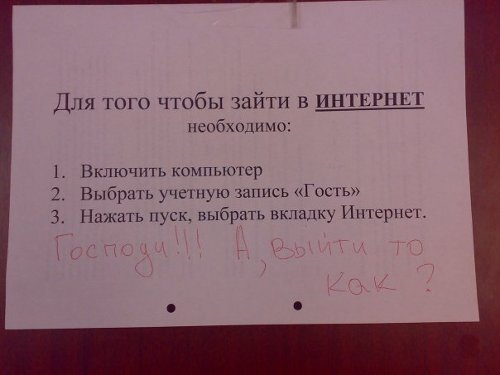 Для того чтобы зайти в ИНТЕРНЕТ
необходимо:
1. Включить компьютер
2. Выбрать учетную запись «Гость»
3. Нажать пуск, выбрать вкладку Интернет.
Господи!!! А, выйти то
как?